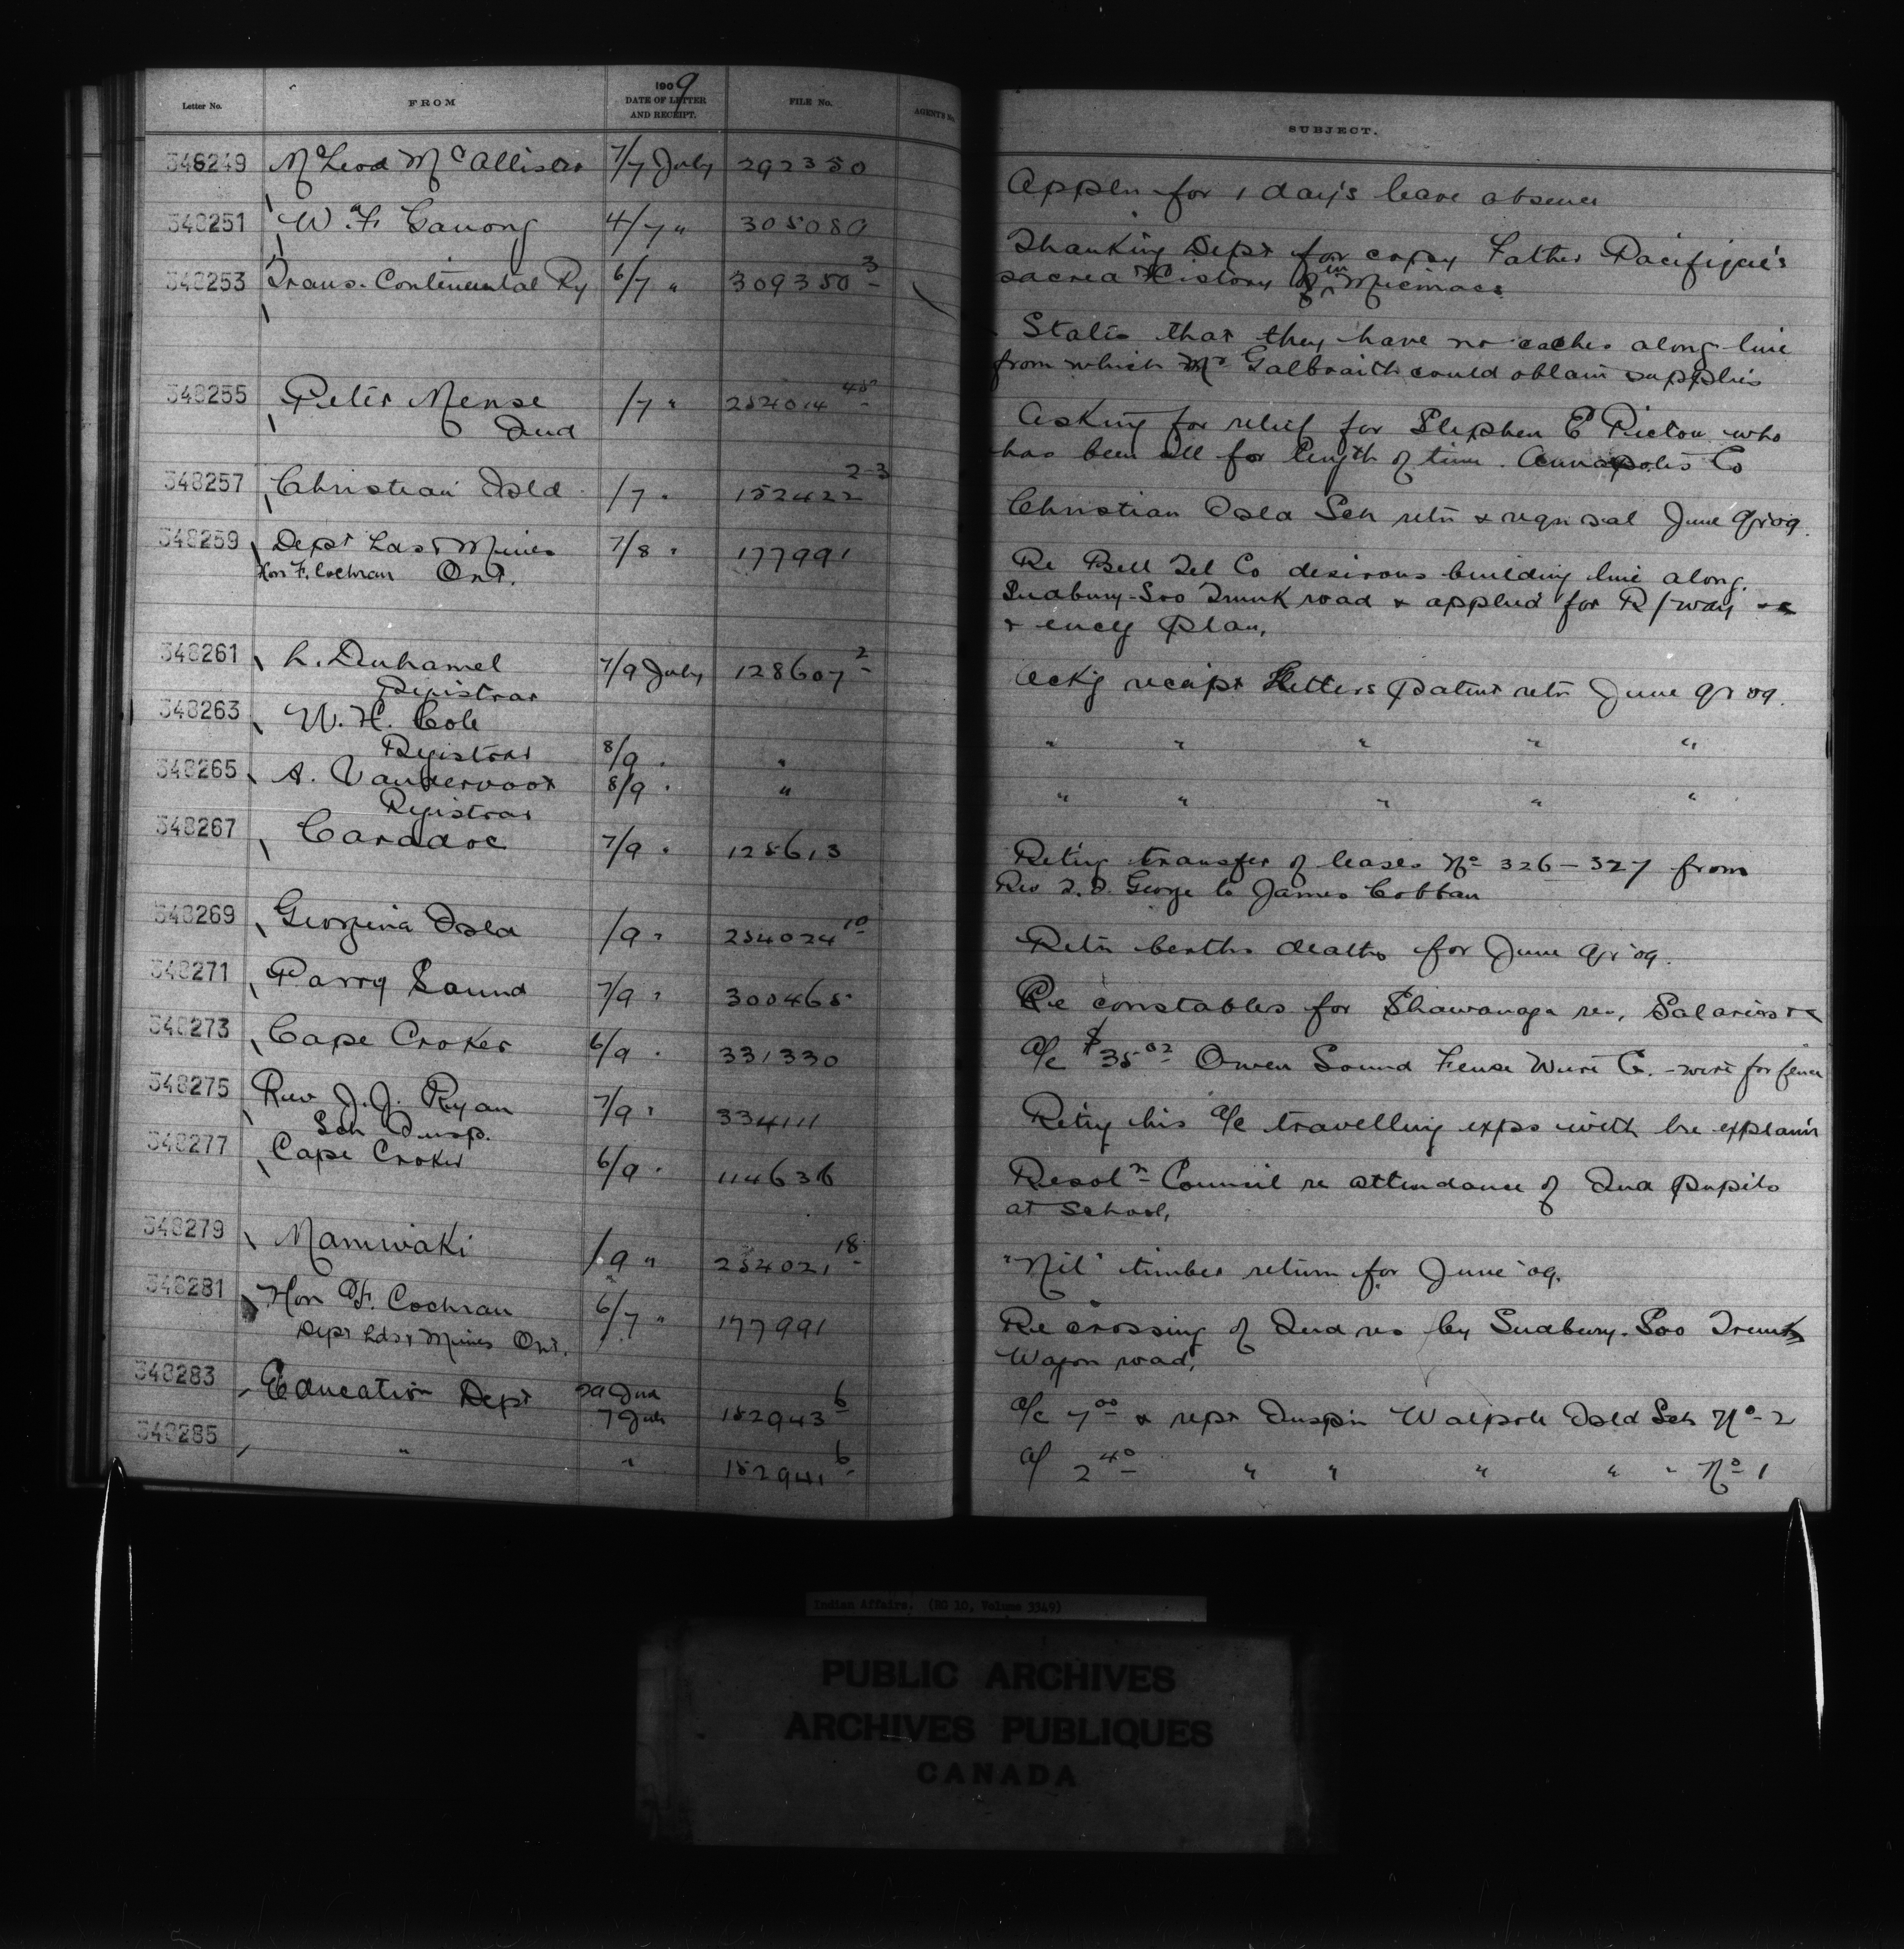 Letter No. FROM 1909 DATE OF LETTER AND RECEIPT. FILE No. AGENTS No. SUBJECT.
348249 McLeod McAllister 7/7 July 292350 Appln for 1 day's leave absence
348251 W. F. Ganong 4/7 " 305080 Thanking Dept for copy Father Pacifique's
sacred History in Micmac
348253 Trans-Continental Ry 6/7 " 309350 3 States that they have no caches along line
from which Mr Galbraith could obtain supplies
348255 Peter /7 " Asking for relief for Stephen E Pictou who
Ind has been ill for length of time. Annapolis Co
348257 Christian Isld /7 " 152422 2-3 Christian Isld Sch retn & reqn sal June qr 09.
348259 Dept Lds & Mines 7/8 " 177991 Re Bell Tel Co desirous building line along
Hon F. Cochran Ont. Sudbury-Soo Trunk road & applied for R/way
& encg plan.
348261 L. Duhamel 7/9 July 128607 2 Ackg receipt Letters Patent retn June qr 09.
Registrar
348263 W. H. Cole
Registrar 8/9 " " " " " " "
348265 A. Vandervoort 8/9 " " " " " " "
Registrar
348267 Caradoc 7/9 " 128613 Retng transfer of leases No 326-327 from
Rev T. D. George to James Cobban
348269 Georgina Isld /9 " 254024 10 Retn births deaths for June qr '09.
348271 Parry Sound 7/9 " 300465 Re constables for Shawanaga res, Salaries &c
348273 Cape Croker 6/9 " 331330 A/c $35.02 Owen Sound Fense Wire Co. - wire for fence
348275 Rev J. J. Ryan 7/9 " 334111 Retng his a/c travelling exps with
Sch Insp.
348277 Cape Croker 6/9 " 114636 Resoln Council re attendance of Ind pupils
at school.
348279 Maniwaki /9 " 254021 18 "Nil" timber return for June '09.
348281 Hon F. Cochran 6/7 " 177991 Re crossing of Ind res by Sudbury-Soo Trunk
Dept Lds & Mines Ont. Wagon road.
348283 Education Dept 29
7 July 152943 6 a/c 7.00 & rept Inspn Walpole Isld Sch No 2
348285 " " 152941 6 a/c 2.40 " " " " " No 1
Indian Affairs. (RG 10, Volume 3349)
PUBLIC ARCHIVES
ARCHIVES PUBLIQUES
CANADA